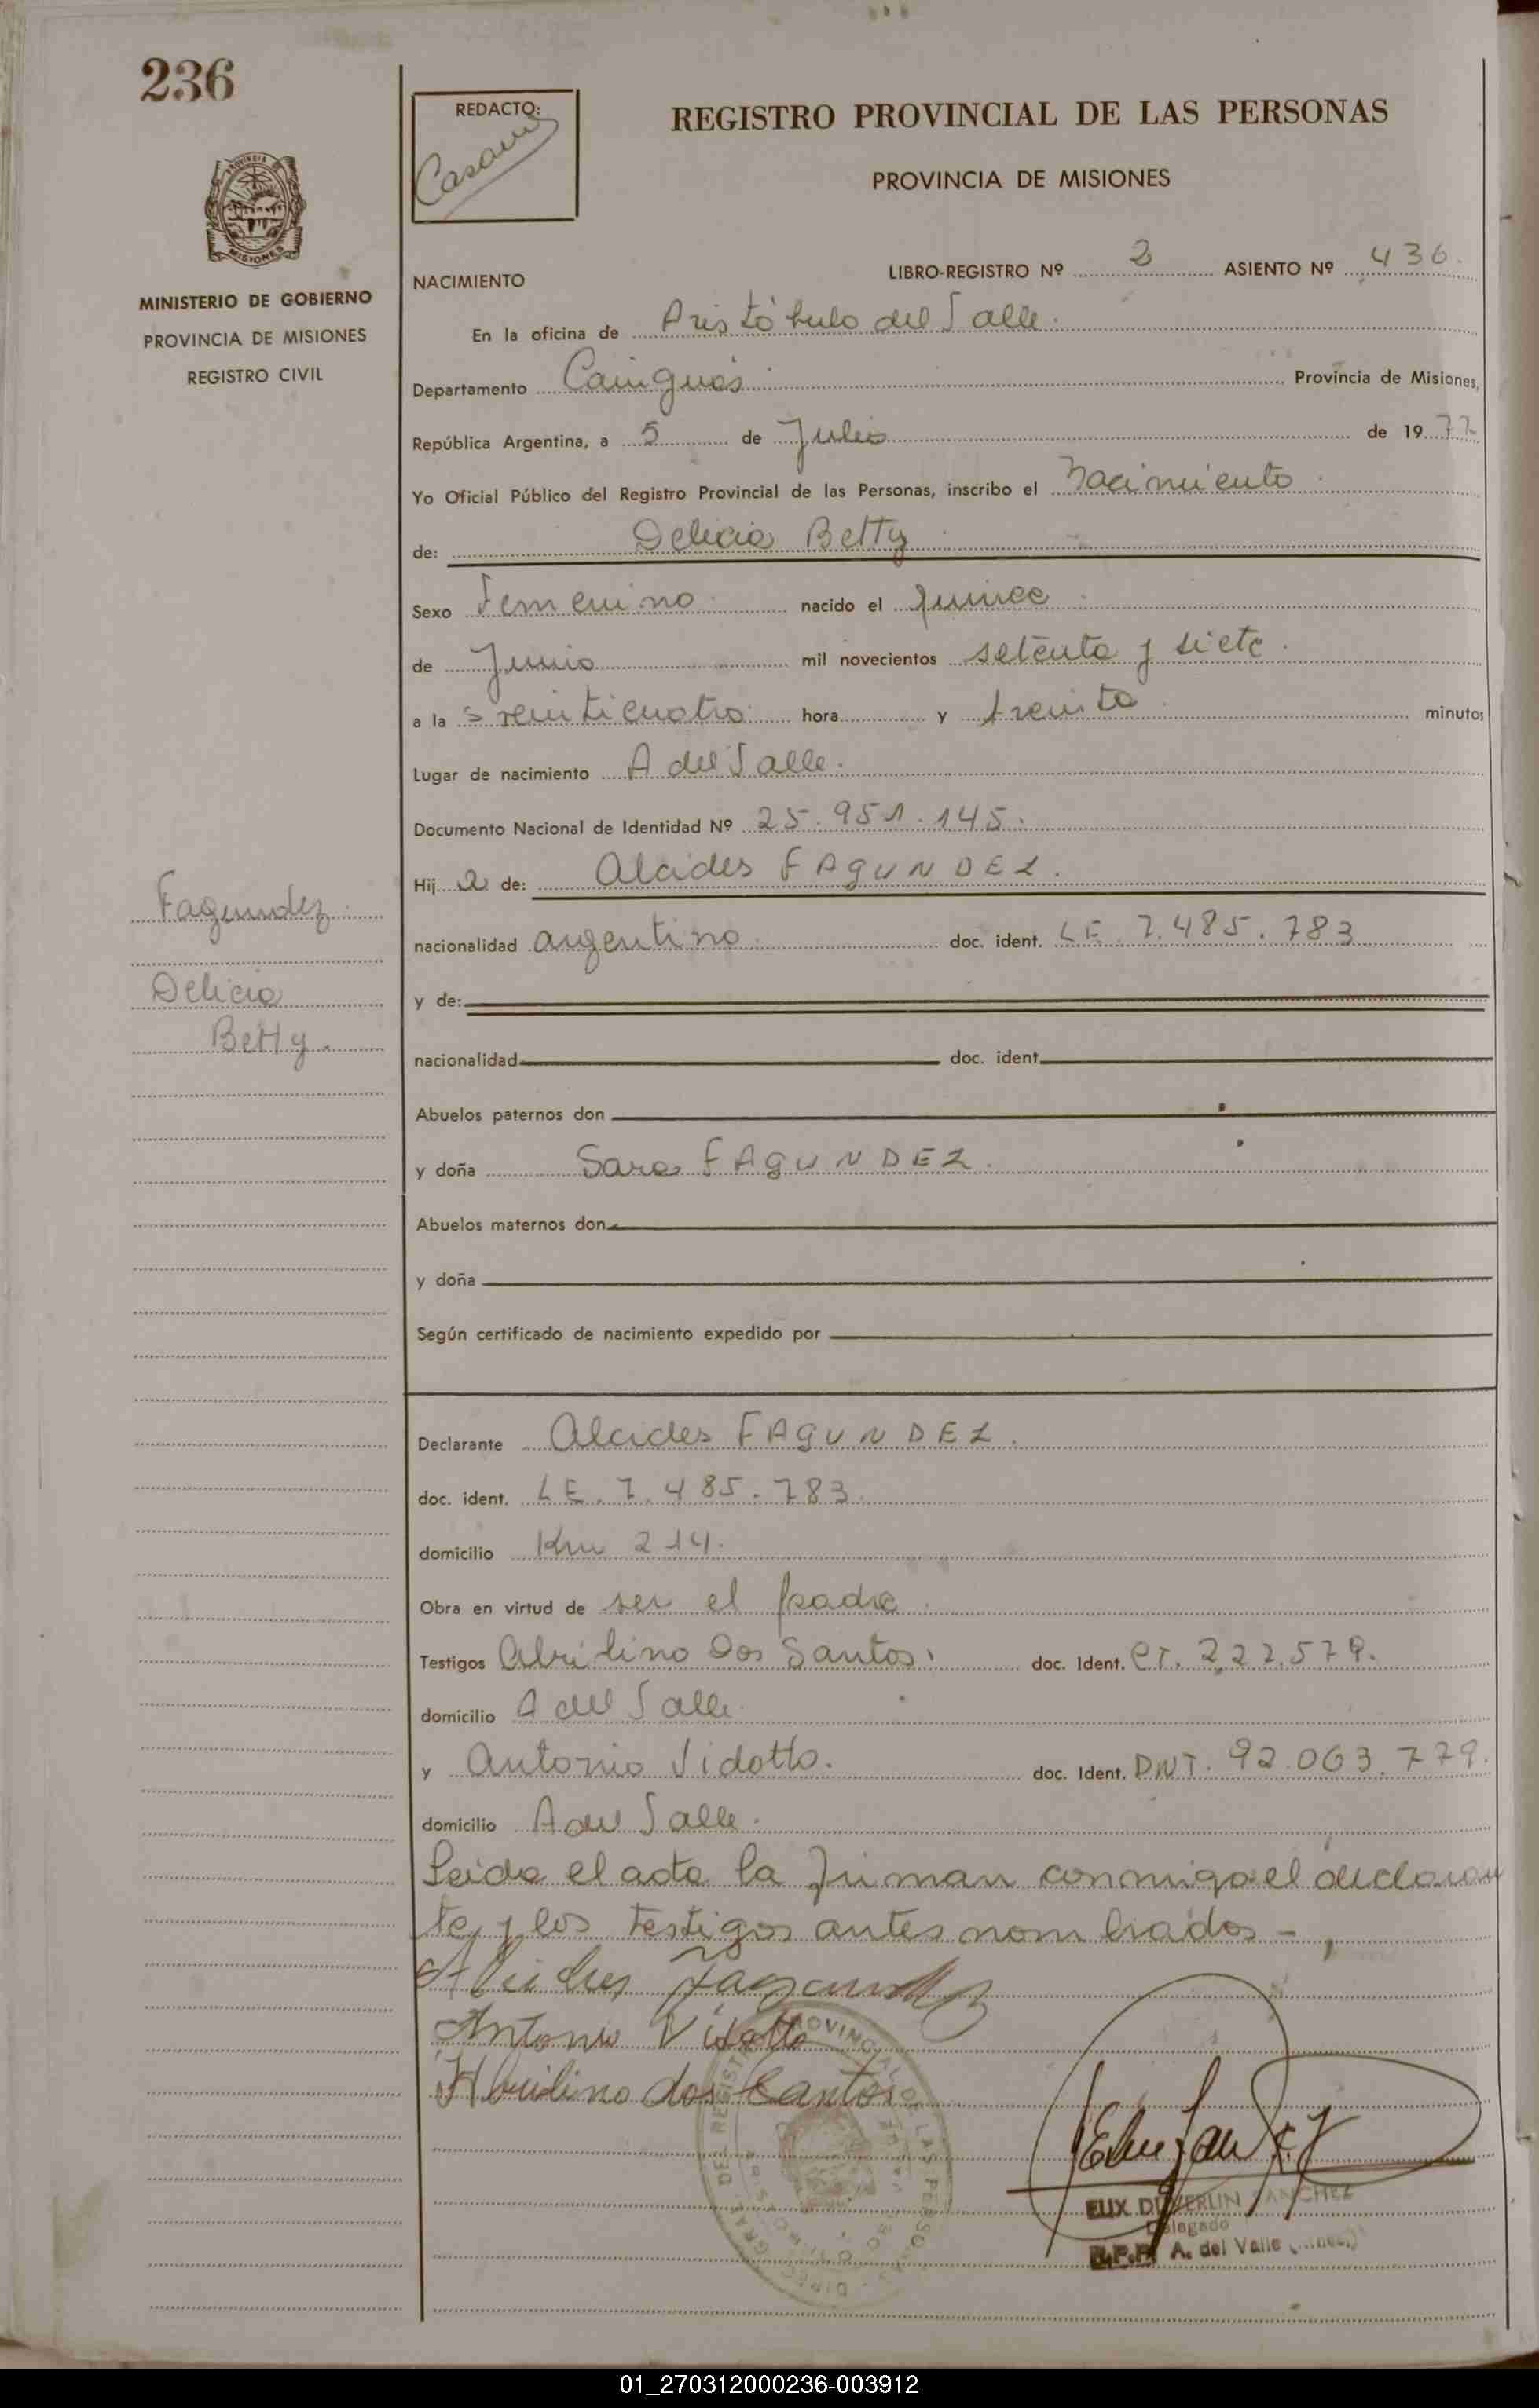 236
REDACTO:
REGISTRO PROVINCIAL DE LAS PERSONAS
PROVINCIA DE MISIONES
MISIONES
MINISTERIO DE GOBIERNO
PROVINCIA DE MISIONES
REGISTRO CIVIL
NACIMIENTO
LIBRO-REGISTRO Nº 2 ASIENTO Nº 436.
En la oficina de Aristóbulo del Valle.
Departamento Cainguás Provincia de Misiones,
República Argentina, a 5 de Julio de 1977
Yo Oficial Público del Registro Provincial de las Personas, inscribo el Nacimiento
de: Delicia Betty
Sexo Femenino nacido el quince
de Junio mil novecientos setenta y siete.
a las veinticuatro hora y treinta minutos
Lugar de nacimiento A del Valle.
Documento Nacional de Identidad Nº 25.951.145.
Hija de: Alcides FAGUNDEZ.
nacionalidad argentino. doc. ident. LE. 7.485.783
Fagundez
Delicia
Betty.
y de:
nacionalidad doc. ident.
Abuelos paternos don
y doña Sara FAGUNDEZ.
Abuelos maternos don
y doña
Según certificado de nacimiento expedido por
Declarante Alcides FAGUNDEZ.
doc. ident. LE. 7.485.783.
domicilio Km 214.
Obra en virtud de ser el padre.
Testigos Abrilino Dos Santos. doc. Ident. CI. 222.579.
domicilio A del Valle
y Antonio Vidotto. doc. Ident. DNI. 92.063.779.
domicilio A del Valle.
Leida el acta la firman conmigo el declaran
te y los testigos antes nombrados -
Alcides Fagundez
Antonio Vidotto
Abrilino dos Santos
ELIX DUVERLIN SANCHEZ
Delegado
R.P.P. A. del Valle
01_270312000236-003912